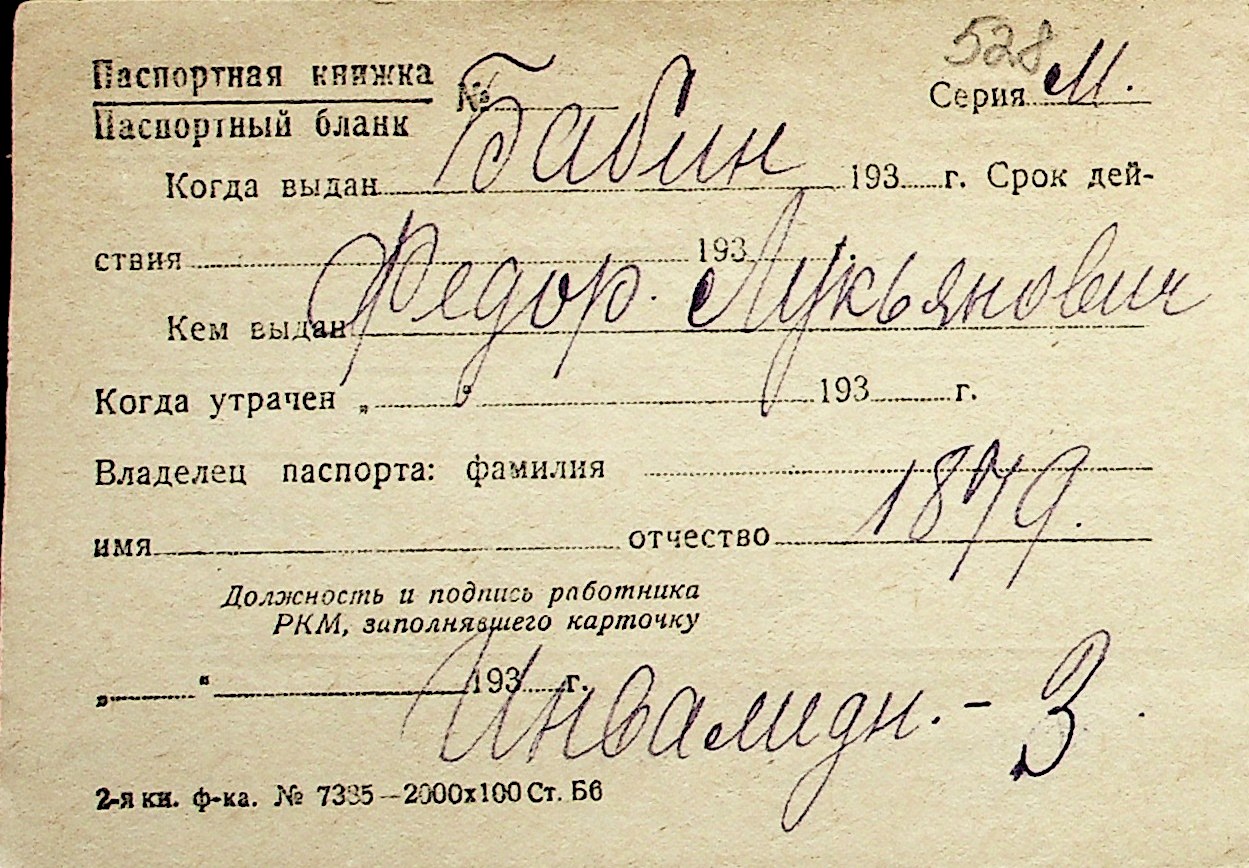 528
Паспортная книжка
Паспортный бланк № Серия М.
Бабин
Когда выдан 193 г. Срок дей-
ствия 193
Федор Лукьянович
Кем выдан
Когда утрачен „ “ 193 г.
Владелец паспорта: фамилия
1879.
имя отчество
Должность и подпись работника
РКМ, заполнявшего карточку
„ “ 193 г.
Инвалидн. - З
2-я кн. ф-ка. № 7335—2000х100 Ст. Б6